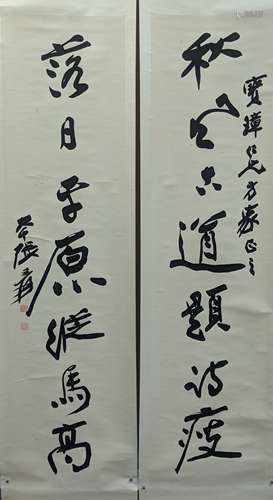 寶璋仁兄方家正之
秋風古道題詩瘦
落日平原縱馬高
大千張爰